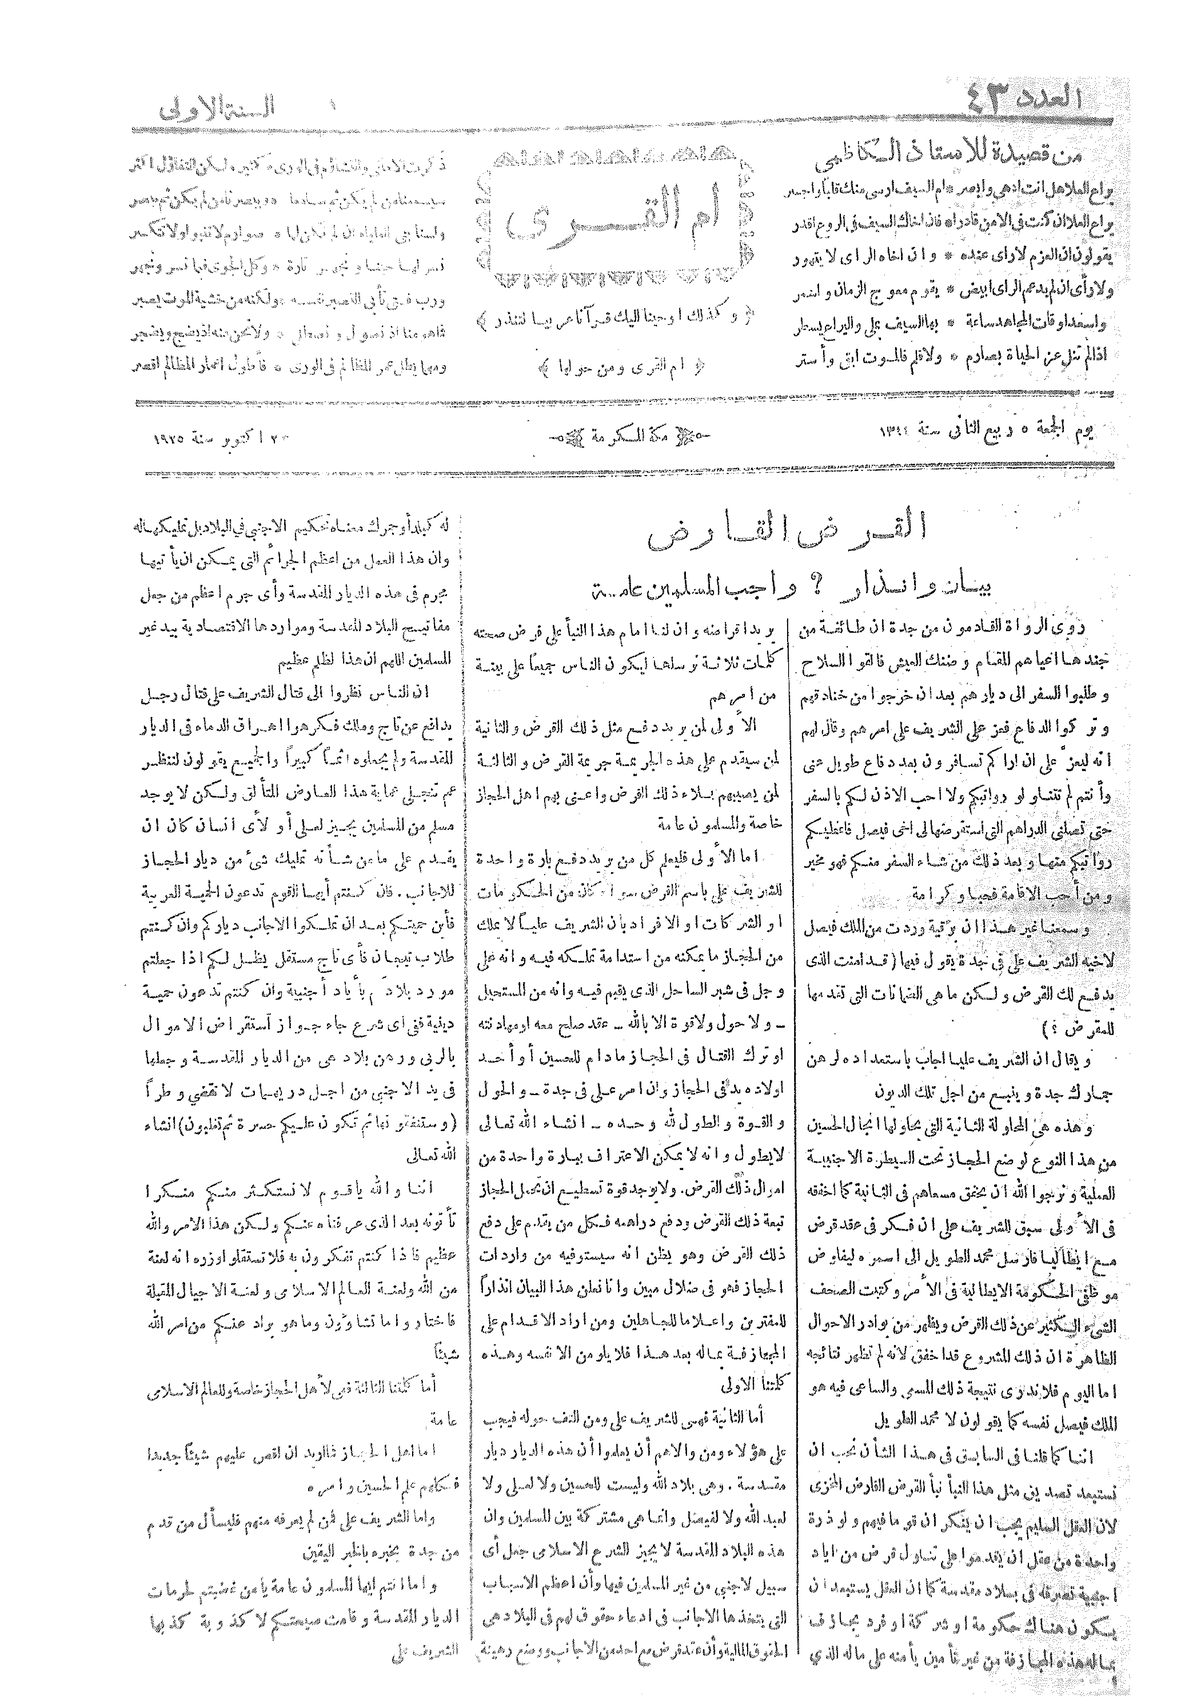 العدد ٤٣
السنة الاولى
من قصيدة للاستاذ الكاظمي
يراع العلا هل انت ادهى وابصر * ام السيف ارسى منك قلباً واجسر
يراع العلا ان كنت في الامن قادرا * فان اخاك السيف في الروع اقدر
يقولون ان العزم لا راى عنده * وان اخاه الراى لا يتهور
ولا رأى ان لم يدعم الراى ابيض * يقوم معوج الزمان واسمر
واسعد اوقات المجاهد ساعة * بها السيف يملي واليراع يسطر
اذا لم تنل عز الحياة بصارم * ولا قلم فالموت ابقى وأستر
ام القرى
﴿ وكذلك اوحينا اليك قرآنا عربيا لتنذر ﴾
﴿ ام القرى ومن حولها ﴾
ذكرت الاماني والتشاؤم في الورى * كثير ولكن التفاؤل اكثر
ولسنا بني العلياء ان لم تكن لها * صوارم لا تنبو ولا تكسر
ورب فتى تأبى التصبر نفسه * ولكنه من خشية الموت يصبر
ومهما يطل عمر المظالم في الورى * فأطول اعمار المظالم اقصر
يوم الجمعة ٥ ربيع الثاني سنة ١٣٤٤
مكة المكرمة
اكتوبر سنة ١٩٢٥
القرض القارض
بيان وانذار ؟ واجب المسلمين عامة
روى الرواة القادمون من جدة ان طائفة من
جندها اعياهم المقام وضنك العيش فالقوا السلاح
وطلبوا السفر الى ديارهم بعد ان خرجوا من خنادقهم
وتركوا الدفاع فعز على الشريف علي امرهم وقال لهم
انه ليعزّ علي ان اراكم تسافرون بعد دفاع طويل عنى
وأنتم لم تتناولوا رواتبكم ولا احب الاذن لكم بالسفر
حتى تصلنى الدراهم التى استقرضها لى اخى فيصل فاعطيكم
رواتبكم منها وبعد ذلك من شاء السفر منكم فهو مخير
ومن أحب الاقامة فحبا وكرامة
وسمعنا غير هذا ان برقية وردت من الملك فيصل
لاخيه الشريف علي في جدة يقول فيها (قد امنت الذى
يدفع لك القرض ولكن ما هى الضمانات التى تقدمها
للمقرض ؟)
ويقال ان الشريف عليا اجاب باستعداده لرهن
جمارك جدة وينبع من اجل تلك الديون
وهذه هى المحاولة الثانية التى يحاولها انجال الحسين
من هذا النوع لوضع الحجاز تحت السيطرة الاجنبية
العملية ونرجوا الله ان يخفق مسعاهم فى الثانية كما اخفقه
فى الأولى سبق للشريف على ان فكر فى عقد قرض
مع ايطاليا فارسل محمد الطويل الى اسمره ليفاوض
موظفى الحكومة الايطالية فى الأمر وكتبت الصحف
الشىء الكثير عن ذلك القرض ويظهر من بوادر الاحوال
الظاهرة ان ذلك المشروع قد اخفق لانه لم تظهر نتائجه
اما اليوم فلا ندرى نتيجة ذلك المسعى والساعى فيه هو
الملك فيصل نفسه كما يقولون لا محمد الطويل
اننا كما قلنا فى السابق فى هذا الشأن نحب ان
نستبعد تصديق مثل هذا النبأ نبأ القرض القارض المخزى
لان العقل السليم يجب ان ينكر ان قوما فيهم ولو ذرة
واحدة من عقل ان يقدموا على تناول قرض من اياد
اجنبية تصرفه فى بلاد مقدسة كما ان العقل يستبعد ان
يكون هناك حكومة او شركة او فرد يجازف
بماله هذه المجازفة من غير تأمين يأمنه على ماله الذي
يريد اقراضه وان لنا امام هذا النبأ على فرض صحته
كلمات ثلاثة نرسلها ليكون الناس جميعاً على بينة
من امرهم
الأولى لمن يريد دفع مثل ذلك القرض والثانية
لمن سيقدم على هذه الجريمة جريمة القرض والثالثة
لمن يصيبهم بلاء ذلك القرض واعنى بهم اهل الحجاز
خاصة والمسلمون عامة
اما الأولى فليعلم كل من يريد دفع بارة واحدة
للشريف على باسم القرض سواء كان من الحكومات
او الشركات او الافراد بان الشريف علياً لا يملك
من الحجاز ما يمكنه من استدامة تملكه فيه وانه على
وجل فى شبر الساحل الذى يقيم فيه وانه من المستحيل
– ولا حول ولا قوة الا بالله – عقد صلح معه او مهادنته
او ترك القتال فى الحجاز ما دام للحسين أو أحد
اولاده يد فى الحجاز وان امر على فى جدة – والحول
والقوة والطول لله وحده – انشاء الله تعالى
لا يطول وانه لا يمكن الاعتراف ببارة واحدة من
اموال ذلك القرض. ولا يوجد قوة تسطيع ان تحمل الحجاز
تبعة ذلك القرض ودفع دراهمه فكل من يقدم على دفع
ذلك القرض وهو يظن انه سيستوفيه من واردات
الحجاز فهو فى ضلال مبين وانا نعلن هذا البيان انذاراً
للمفترين واعلاما للجاهلين ومن اراد الاقدام على
المجازفة بماله بعد هذا فلا يلومن الا نفسه وهذه
كلمتنا الاولى
أما الثانية فهى للشريف على ومن التف حوله فيجب
على هؤلاء ومن والاهم أن يعلموا أن هذه الديار ديار
مقدسة. وهى بلاد الله وليست للحسين ولا لعلى ولا
لعبد الله ولا لفيصل وانما هى مشتركة بين المسلمين وان
هذه البلاد المقدسة لا يجيز الشرع الاسلامى جعل أى
سبيل لاجنبى من غير المسلمين فيها وأن اعظم الاسباب
التى يتخذها الاجانب فى ادعاء حقوق لهم فى البلاد هى
الحقوق المالية وأن عقد قرض مع احد من الاجانب ووضع رهينة
له كبلد أو جمرك معناه تحكيم الاجنبى فى البلاد بل تمليكها له
وان هذا العمل من اعظم الجرائم التى يمكن ان يأتيها
مجرم فى هذه الديار المقدسة وأى جرم اعظم من جعل
مفاتيح البلاد المقدسة ومواردها الاقتصادية بيد غير
المسلمين اللهم ان هذا لظلم عظيم
ان الناس نظروا الى قتال الشريف على قتال رجل
يدافع عن تاج وملك فكرهوا اهراق الدماء فى الديار
المقدسة ولم يجعلوه اثماً كبيراً والجميع يقولون لننظر
عم تنجلى عماية هذا العارض المتألق ولكن لا يوجد
مسلم من المسلمين يجيز لعلى أو لأى انسان كان ان
يقدم على ما من شأنه تمليك شئ من ديار الحجاز
للاجانب. فان كنتم أيها القوم تدعون الحمية العربية
فأين حميتكم بعد ان تملكوا الاجانب دياركم وان كنتم
طلاب تيجان فأى تاج مستقل يظل لكم اذا جعلتم
موارد بلادكم بأياد أجنبية وان كنتم تدعون حمية
دينية ففى اى شرع جاء جواز استقراض الاموال
بالربى ورهن بلاد هى من الديار المقدسة وجعلها
فى يد الاجنبى من اجل دريهمات لا تقضي وطراً
(وستنفقونها ثم تكون عليكم حسرة ثم تغلبون) انشاء
الله تعالى
اننا والله ياقوم لا نستكثر منكم منكرا
تأتونه بعد الذى عرفناه عنكم ولكن هذا الامر والله
عظيم فاذا كنتم تفكرون به فلا تستقلوا وزره انه لعنة
من الله ولعنة العالم الاسلامى ولعنة الاجيال المقبلة
فاختاروا ما تشاؤون وما هو براد عنكم من امر الله
شيئاً
أما كلمتنا الثالثة فهى لأهل الحجاز خاصة وللعالم الاسلامى
عامة
اما اهل الحجاز فلا اريد ان اقص عليهم شيئاً جديدا
فكلهم علم الحسين وامره
واما الشريف على فمن لم يعرفه منهم فليسأل من قدم
من جدة يخبره بالخبر اليقين
واما انتم ايها المسلمون عامة يا من غضبتم لحرمات
الديار المقدسة وقامت صيحتكم لا كذوبة كذبها
الشريف على